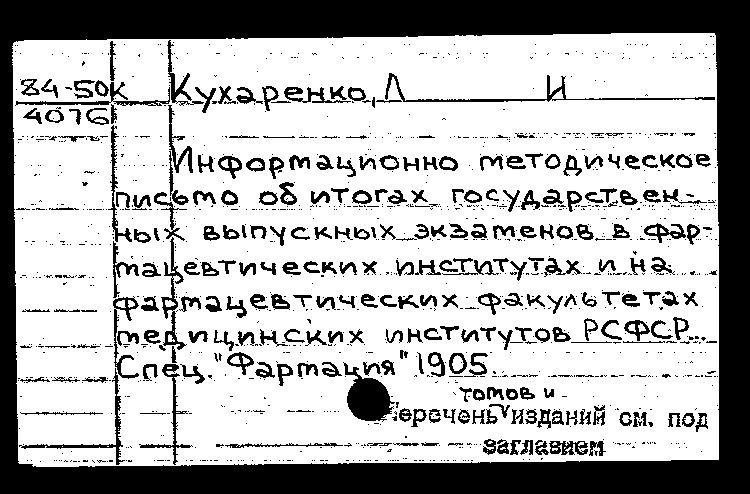 84-50к Кухаренко, Л И
4076
Информационно методическое
письмо об итогах государствен-
ных выпускных экзаменов в фар-
мацевтических институтах и на
фармацевтических факультетах
медицинских институтов РСФСР...
Спец. "Фармация" 1905.
томов и
Перечень изданий см. под
заглавием